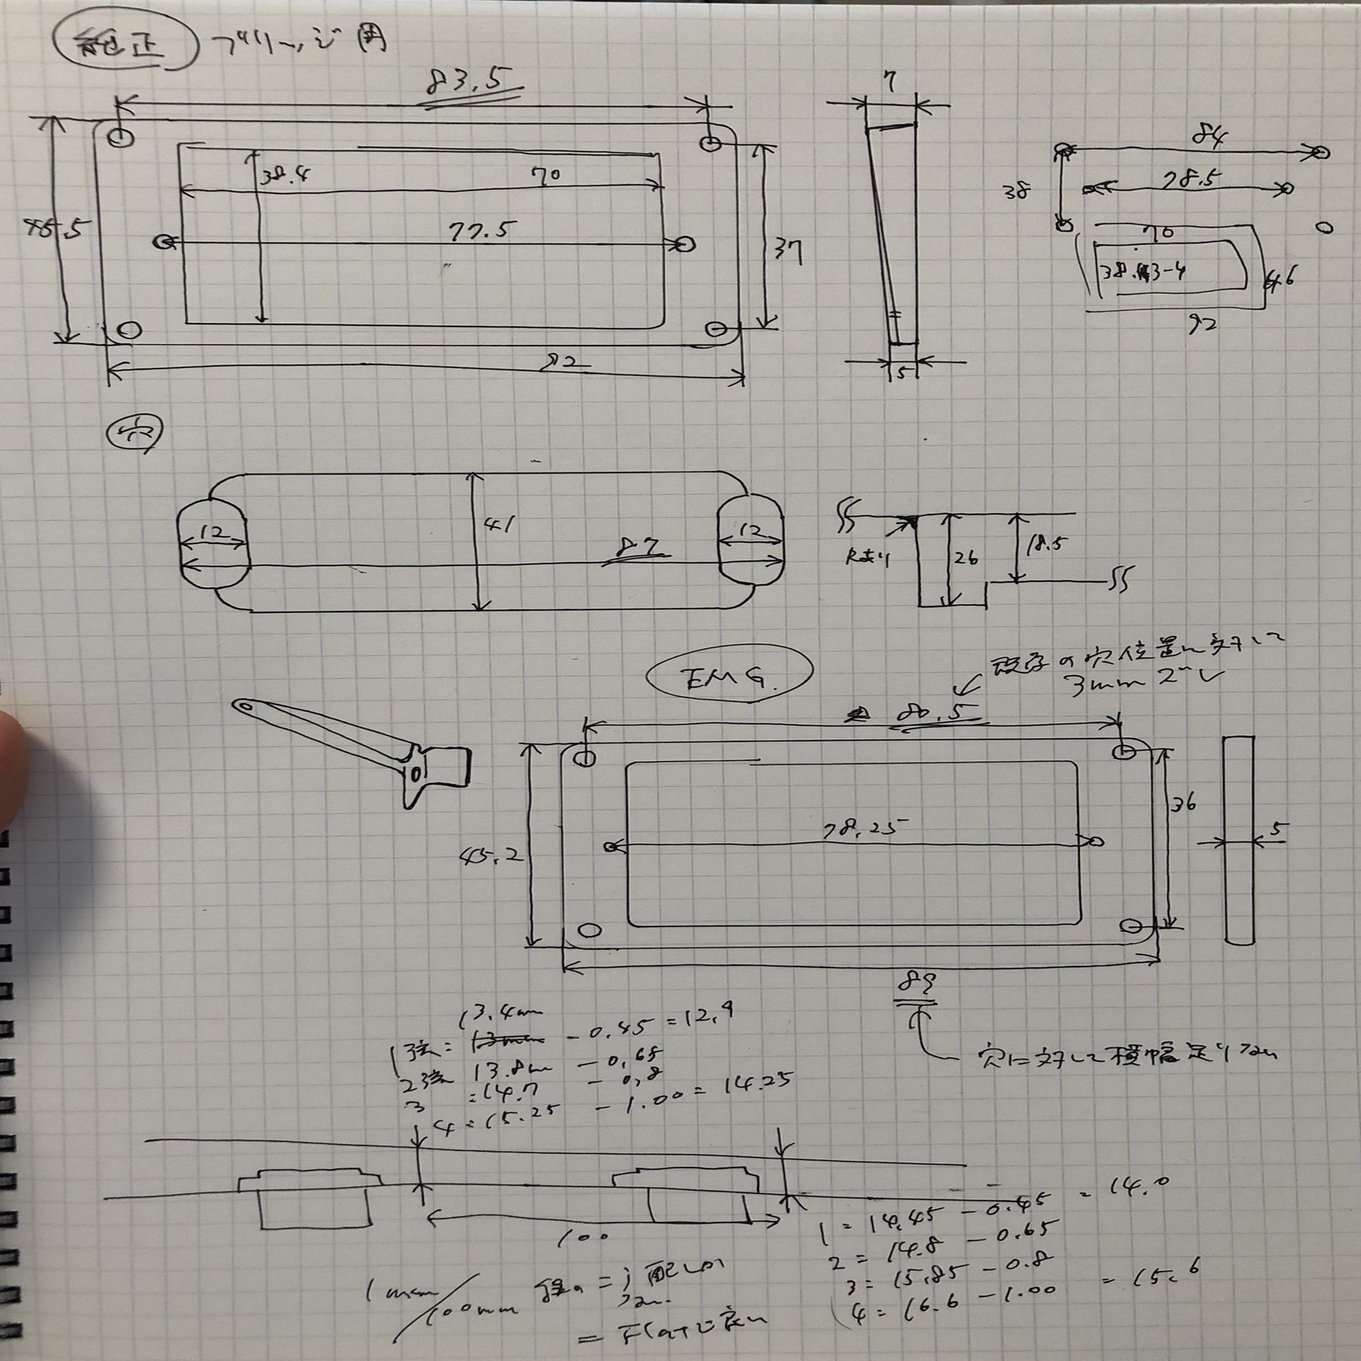 純正 ブリッジ用
83.5
7
84
38.4
70
38
78.5
46.5
77.5
37
70
38.3-4
46
92
92
5
穴
12
41
12
87
R有り
26
18.5
EMG.
既存の穴位置に対して
3mmズレ
80.5
36
78.25
45.2
5
89
穴に対して横幅足りない
1弦= 13.4mm - 0.45 = 12.9
2弦 13.8mm - 0.65
3 = 14.7 - 0.8
4 = 15.25 - 1.00 = 14.25
100
1 = 14.45 - 0.45 = 14.0
2 = 14.8 - 0.65
3 = 15.85 - 0.8
4 = 16.6 - 1.00 = 15.6
1mm/100mm